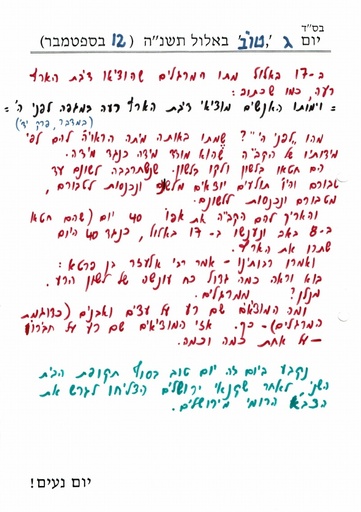 בס"ד
יום ג', טו"ב באלול תשנ"ה (12 בספטמבר)
ב-17 באלול מתו המרגלים שהוציאו דיבת הארץ
רעה, כמו שכתוב:
"וימותו האנשים מוציאי דיבת הארץ רעה במגפה לפני ה'"
(במדבר, פרק יד')
מהו "לפני ה'"? שמתו באותה מיתה הראויה להם לפי
מידותיו של הקב"ה שהוא מודד מידה כנגד מידה.
הם חטאו בלשון ולקו בלשון. שנשתרבבה לשונם עד
טבורם והיו תולעים יוצאים מלשונם ונכנסות לטבורם,
מטבורם ונכנסות ללשונם.
והאריך להם הקב"ה את אפו 40 יום (שהם חטאו
ב-8 באב ונענשו ב-17 באלול, כנגד 40 היום
שתרו את הארץ.
ואמרו רבותינו - אמר רבי אלעזר בן פרטא:
בוא וראה כמה גדול כח עונשה של לשון הרע.
מנלן? ממרגלים.
ומה המוציאים שם רע על עצים ואבנים (כדוגמת
המרגלים) - כך. אזי המוציאים שם רע על חברו
- על אחת כמה וכמה.
נקבע ביום זה יום טוב בסוף תקופת הבית
השני, לאחר שקנאי ירושלים הצליחו לגרש את
הצבא הרומי מירושלים.
יום נעים!